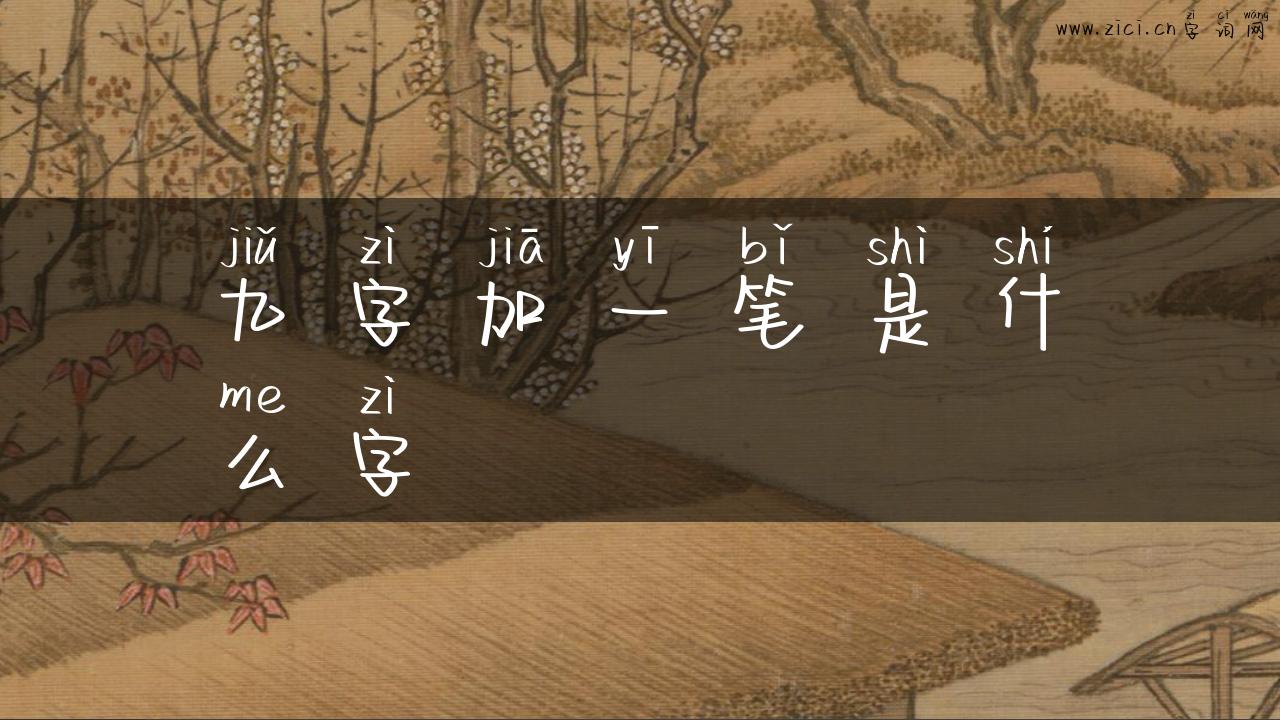 zì cí wǎng
www.zici.cn字词网
jiǔ zì jiā yī bǐ shì shí
九字加一笔是什
me zì
么字